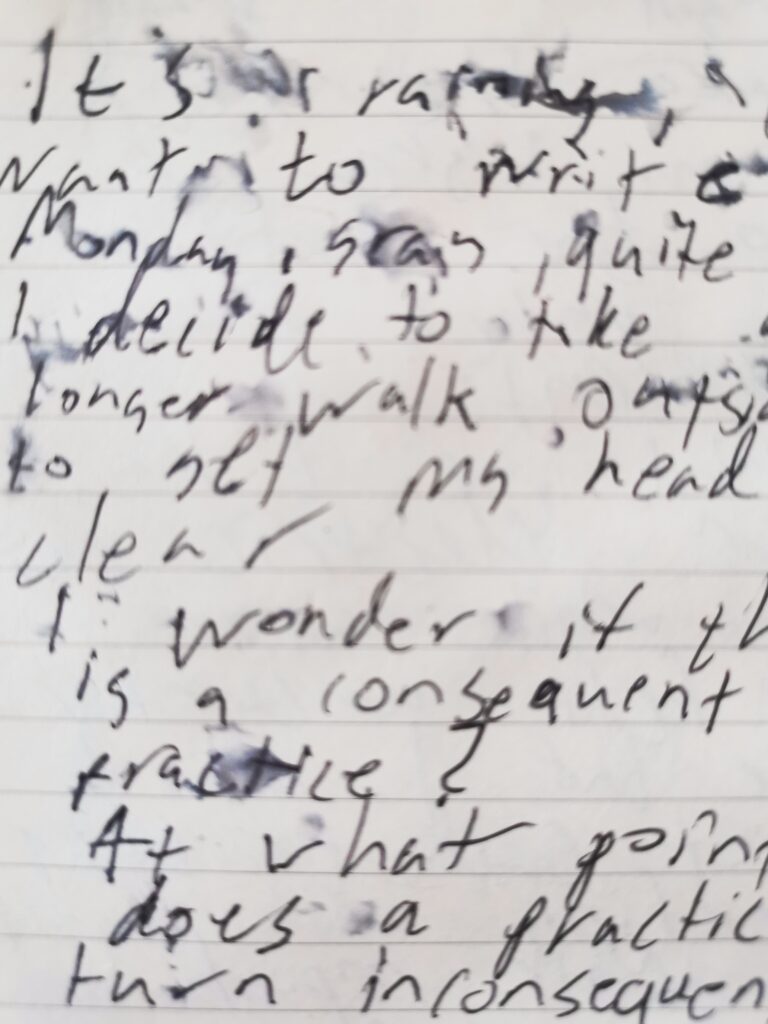 It's raining, I
want to write
Monday, gray, quite
I decide to take a
longer walk outsi
to get my head
clear
I wonder if th
is a consequent
practice?
At what poin
does a practic
turn inconsequen